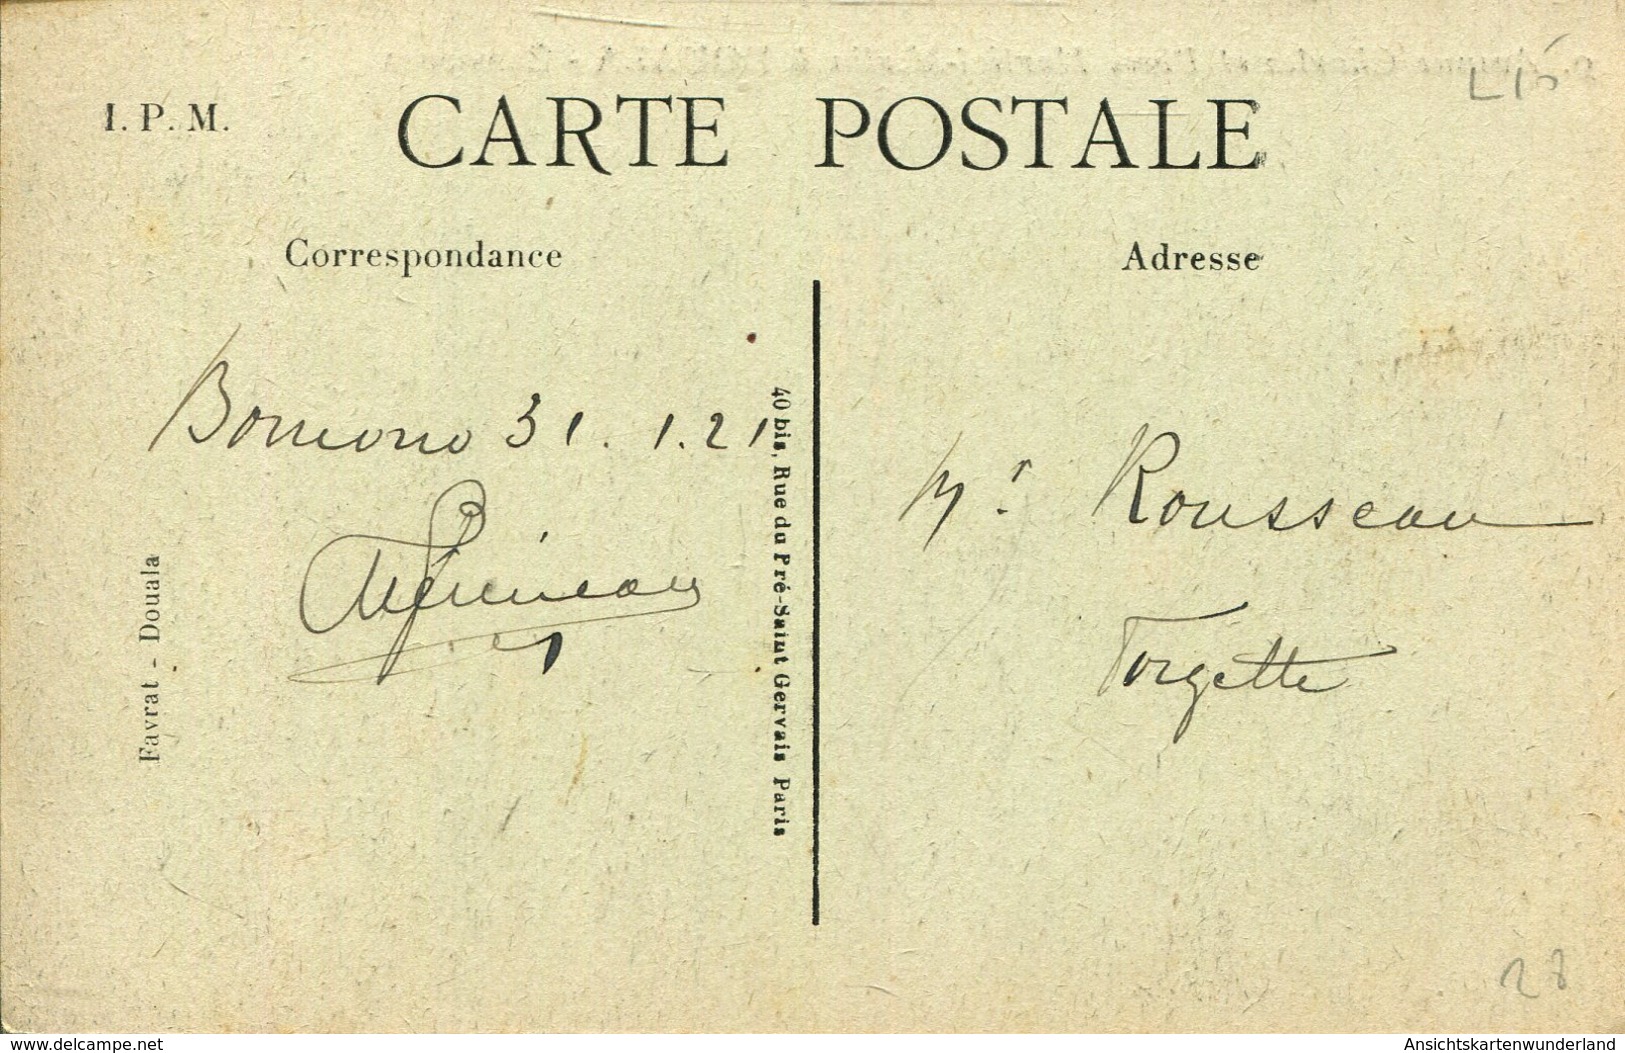 I. P. M.
CARTE POSTALE
Correspondance
Adresse
Bomono 31.1.21
Favrat - Douala
40 bis, Rue du Pré-Saint Gervais Paris
Mr. Rousseau
Forgette
28
www.delcampe.net
Ansichtskartenwunderland